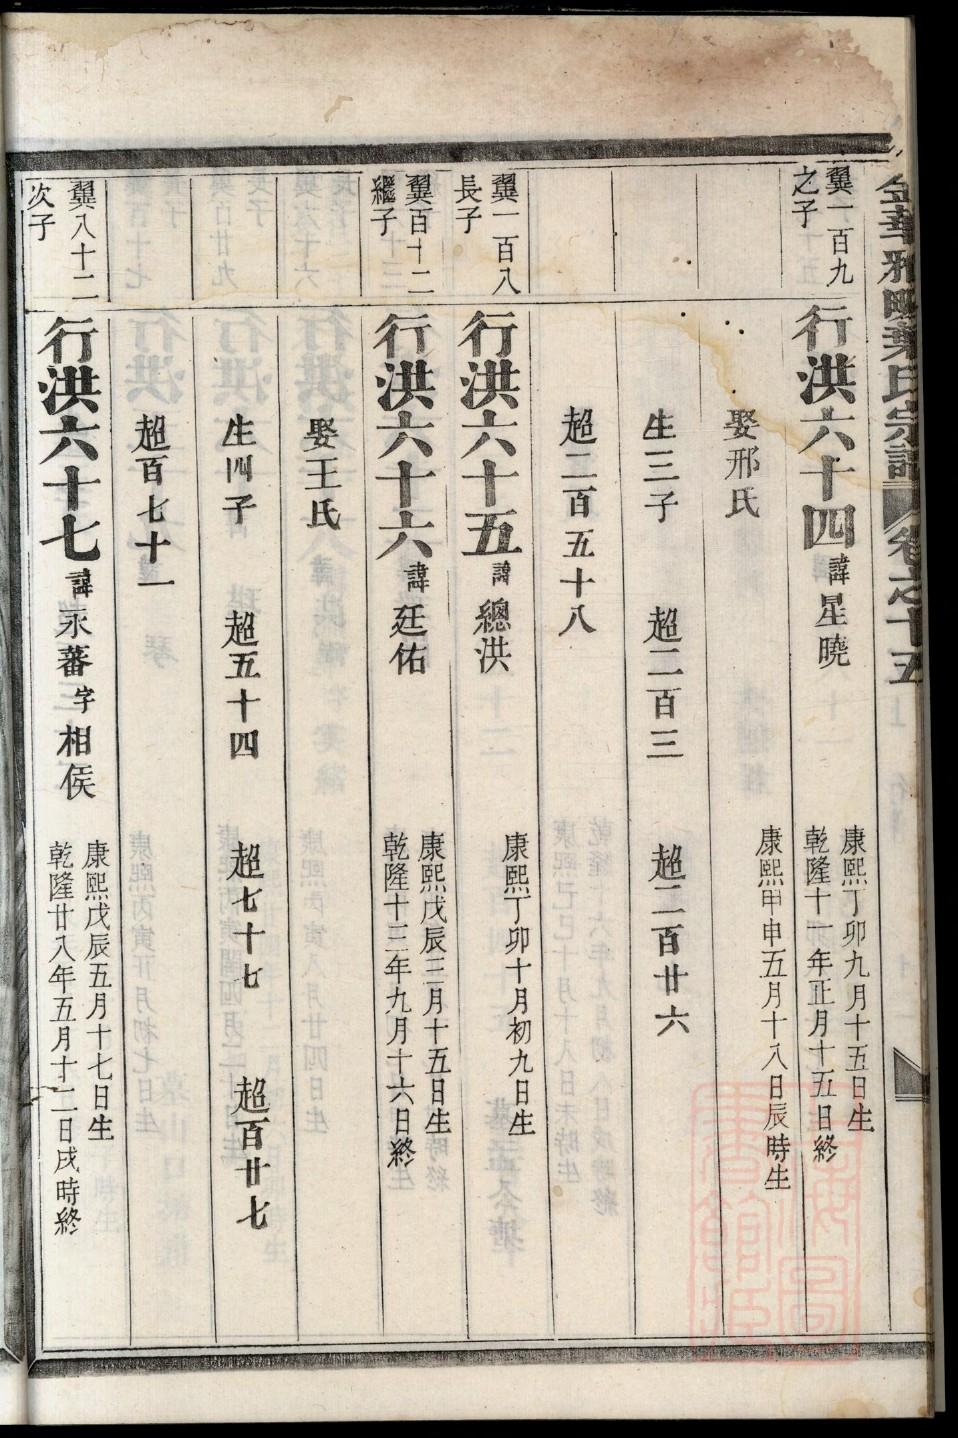 金華雅畈葉氏宗譜 卷之十五
翼一百九之子
行洪六十四 諱星曉
康熙丁卯九月十五日生
乾隆十一年正月十五日終
娶邢氏
康熙甲申五月十八日辰時生
生三子 超二百三 超二百廿六
超二百五十八
翼一百八長子
行洪六十五 諱總洪
康熙丁卯十月初九日生
翼百十二繼子
行洪六十六 諱廷佑
康熙戊辰三月十五日生
乾隆十三年九月十六日終
娶王氏
生四子 超五十四 超七十七 超百廿七
超百七十一
翼八十二次子
行洪六十七 諱永蕃 字相侯
康熙戊辰五月十七日生
乾隆廿八年五月十二日戌時終